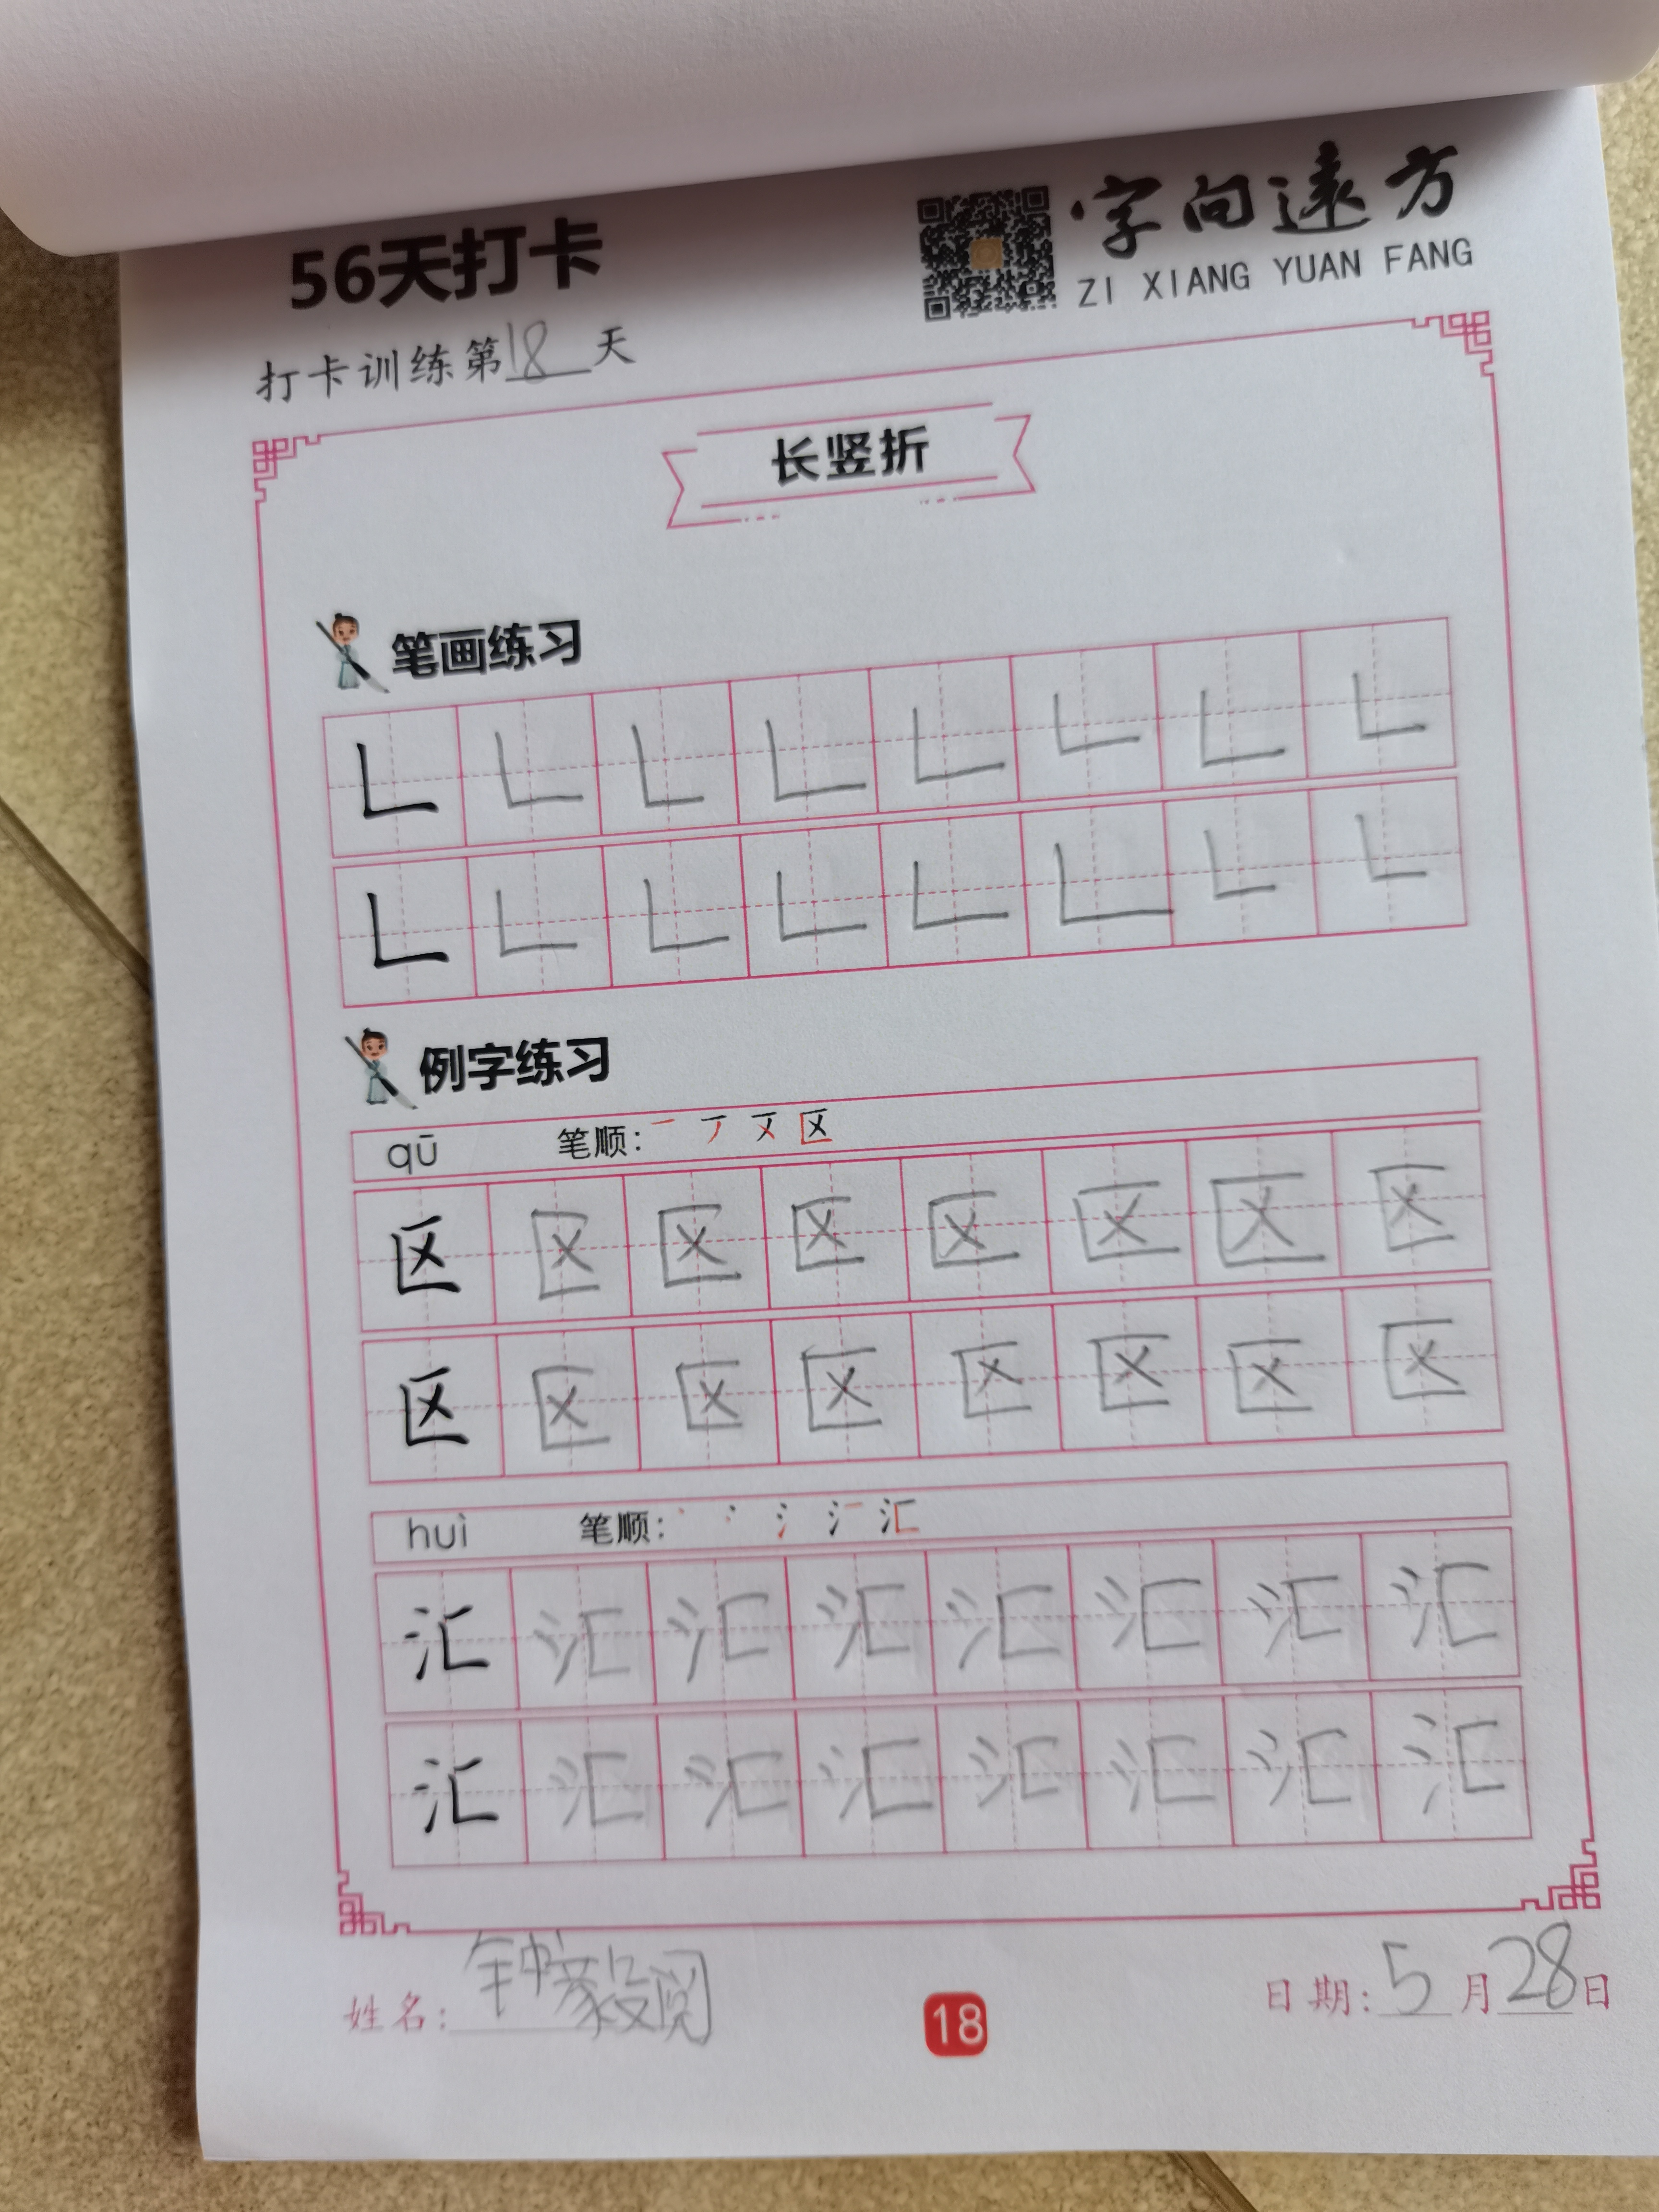 56天打卡
字向遠方
ZI XIANG YUAN FANG
打卡训练第18天
长竖折
笔画练习
𠃊 𠃊 𠃊 𠃊 𠃊 𠃊 𠃊 𠃊
𠃊 𠃊 𠃊 𠃊 𠃊 𠃊 𠃊 𠃊
例字练习
qū 笔顺: 区
区 区 区 区 区 区 区 区
区 区 区 区 区 区 区 区
huì 笔顺: 汇
汇 汇 汇 汇 汇 汇 汇 汇
汇 汇 汇 汇 汇 汇 汇 汇
姓名: 钟毅阅
18
日期: 5月28日